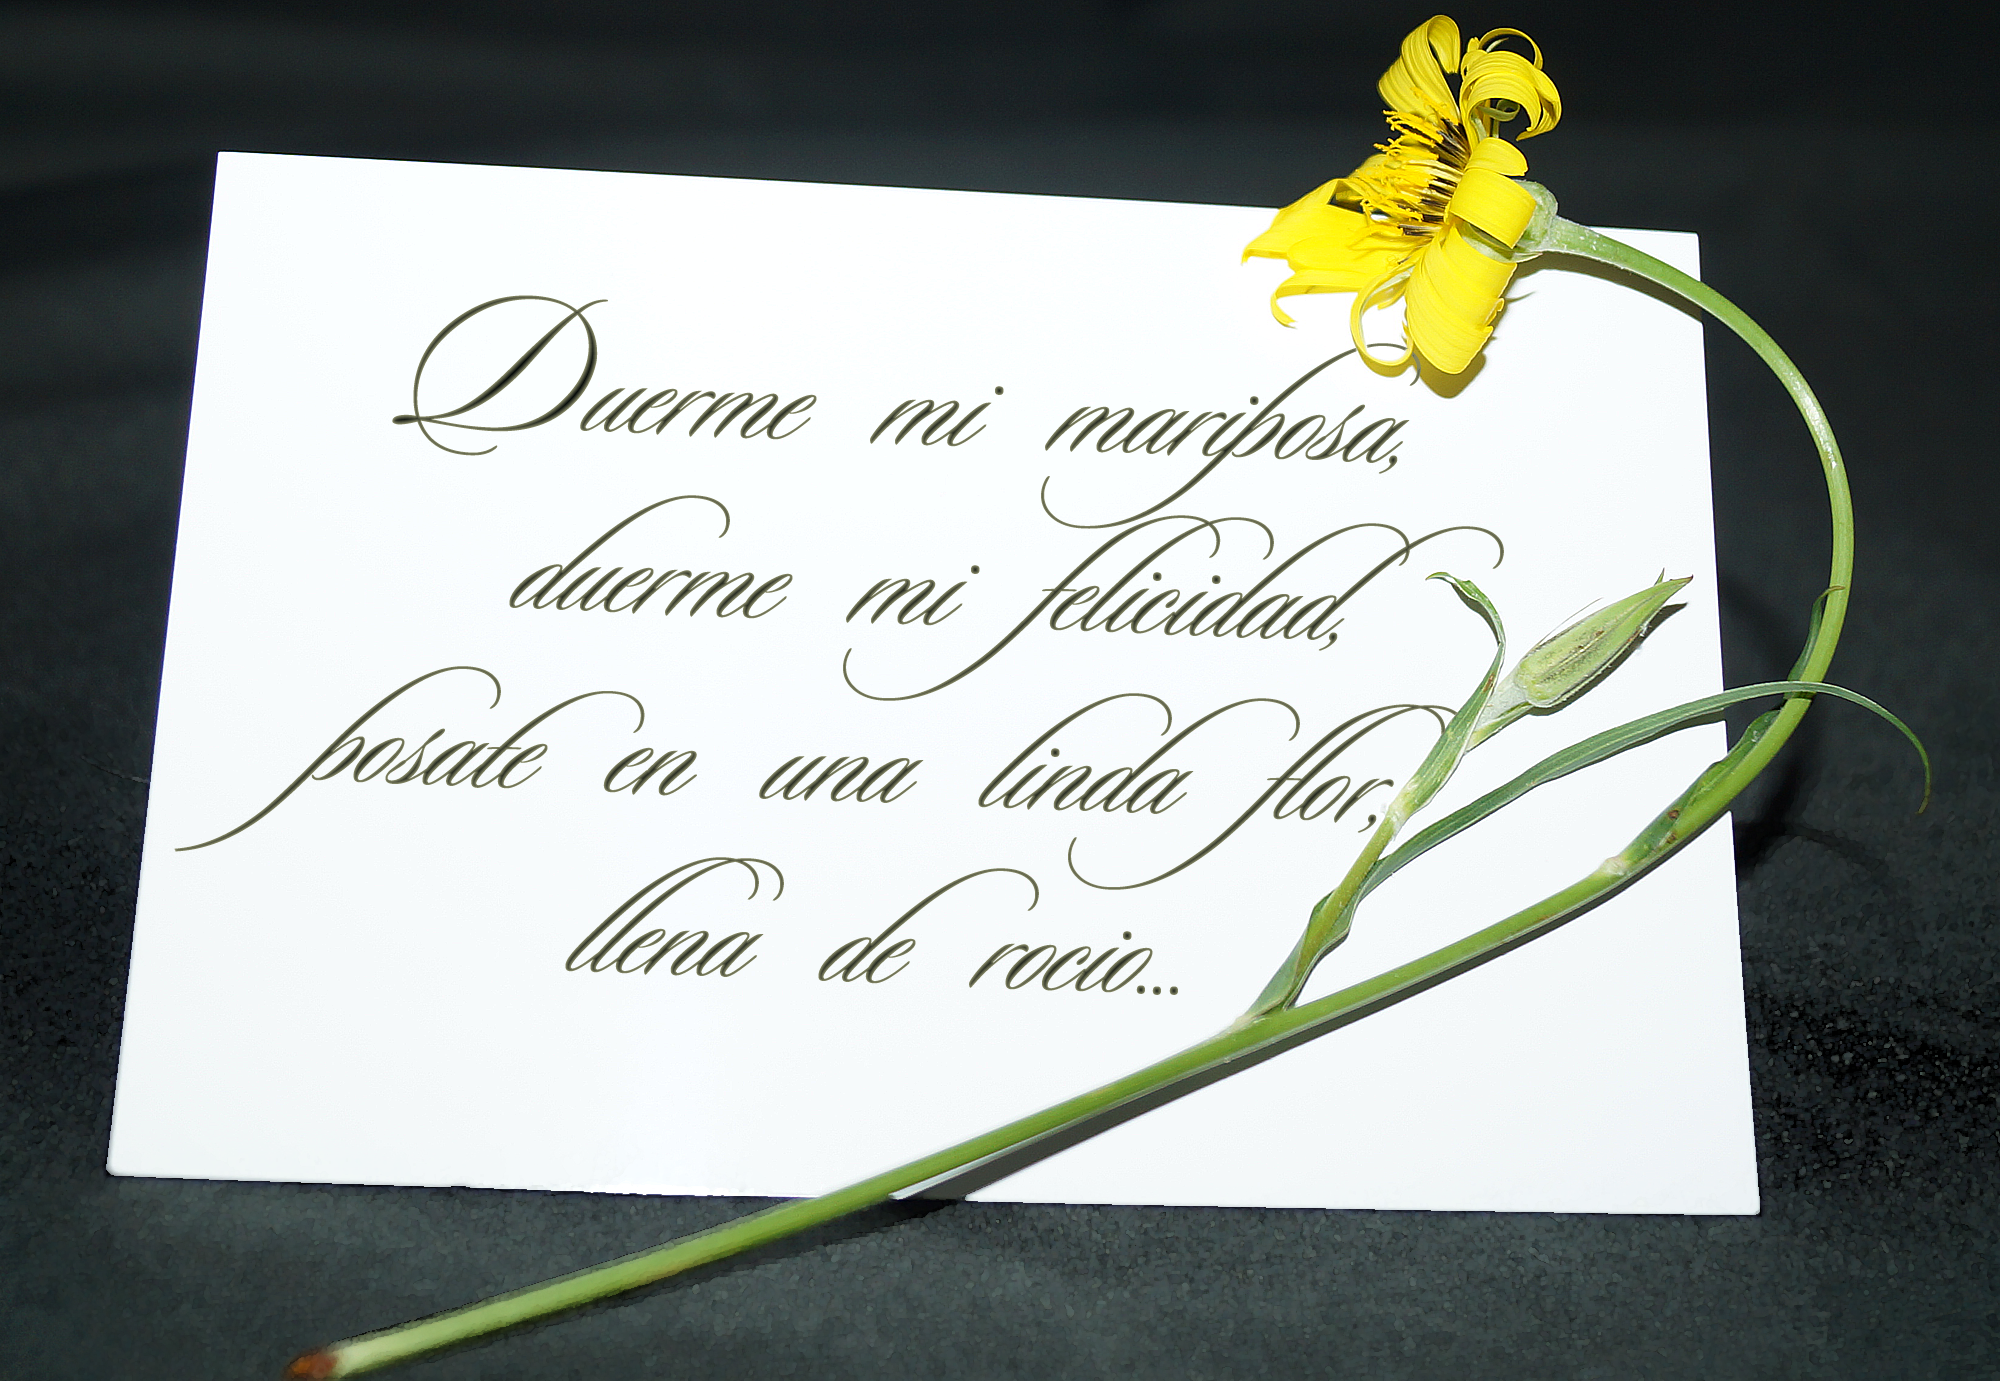 Duerme mi mariposa,
duerme mi felicidad,
posate en una linda flor,
llena de rocio...